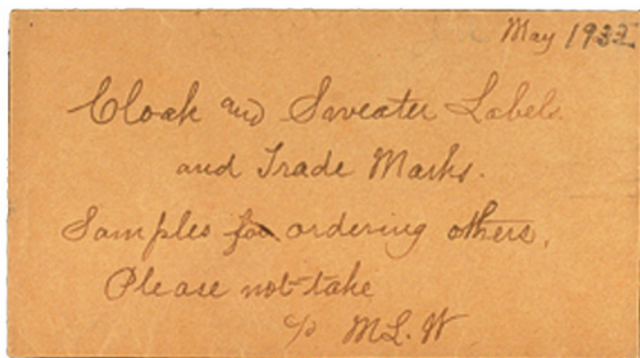 May 1932
Cloak and Sweater Labels
and Trade Marks.
Samples for ordering others.
Please not take
M.L.W